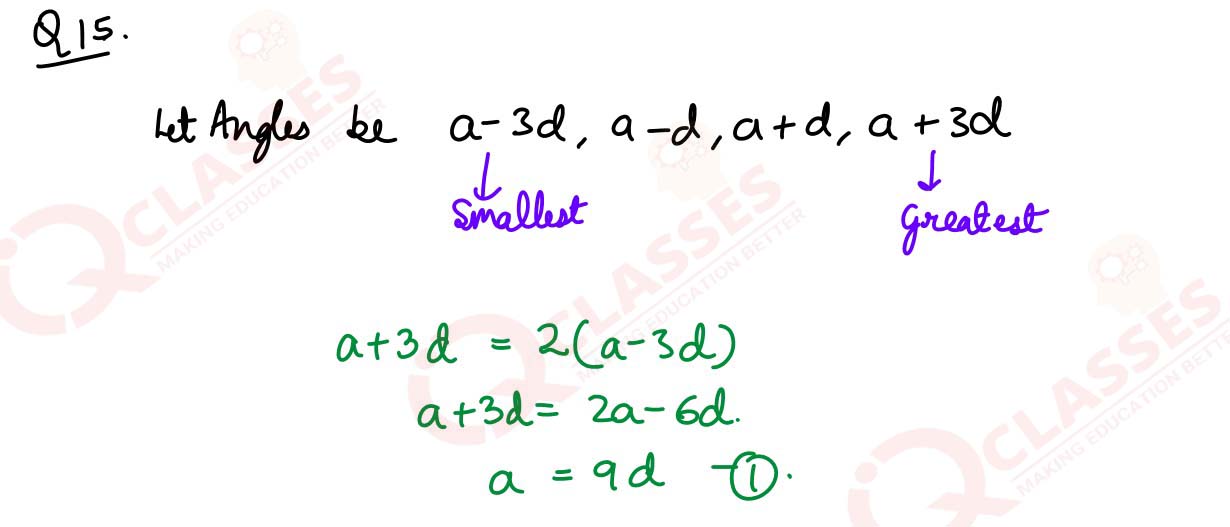 Q15.
Let Angles be a-3d, a-d, a+d, a+3d
Smallest
Greatest
a+3d = 2(a-3d)
a+3d = 2a-6d.
a = 9d -①.
iQ CLASSES
MAKING EDUCATION BETTER
iQ CLASSES
MAKING EDUCATION BETTER
iQ CLASSES
MAKING EDUCATION BETTER